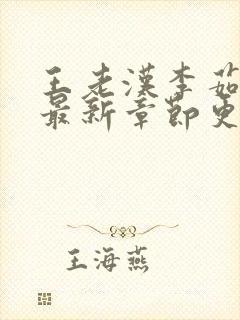 王老汉李茹
最新章节更
王海燕